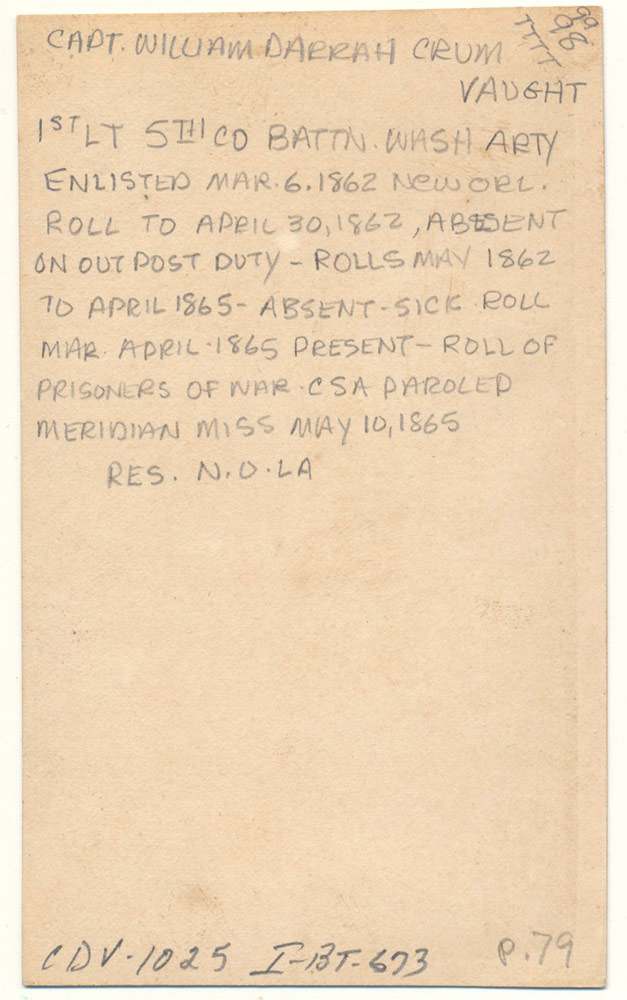 CAPT. WILLIAM DARRAH CRUM
VAUGHT
1ST LT 5TH CO BATTN. WASH ARTY
ENLISTED MAR. 6. 1862 NEW ORL.
ROLL TO APRIL 30, 1862, ABSENT
ON OUTPOST DUTY - ROLLS MAY 1862
TO APRIL 1865 - ABSENT - SICK ROLL
MAR. APRIL - 1865 PRESENT - ROLL OF
PRISONERS OF WAR. CSA PAROLED
MERIDIAN MISS MAY 10, 1865
RES. N.O. LA
CDV-1025 I-BT-673 P.79